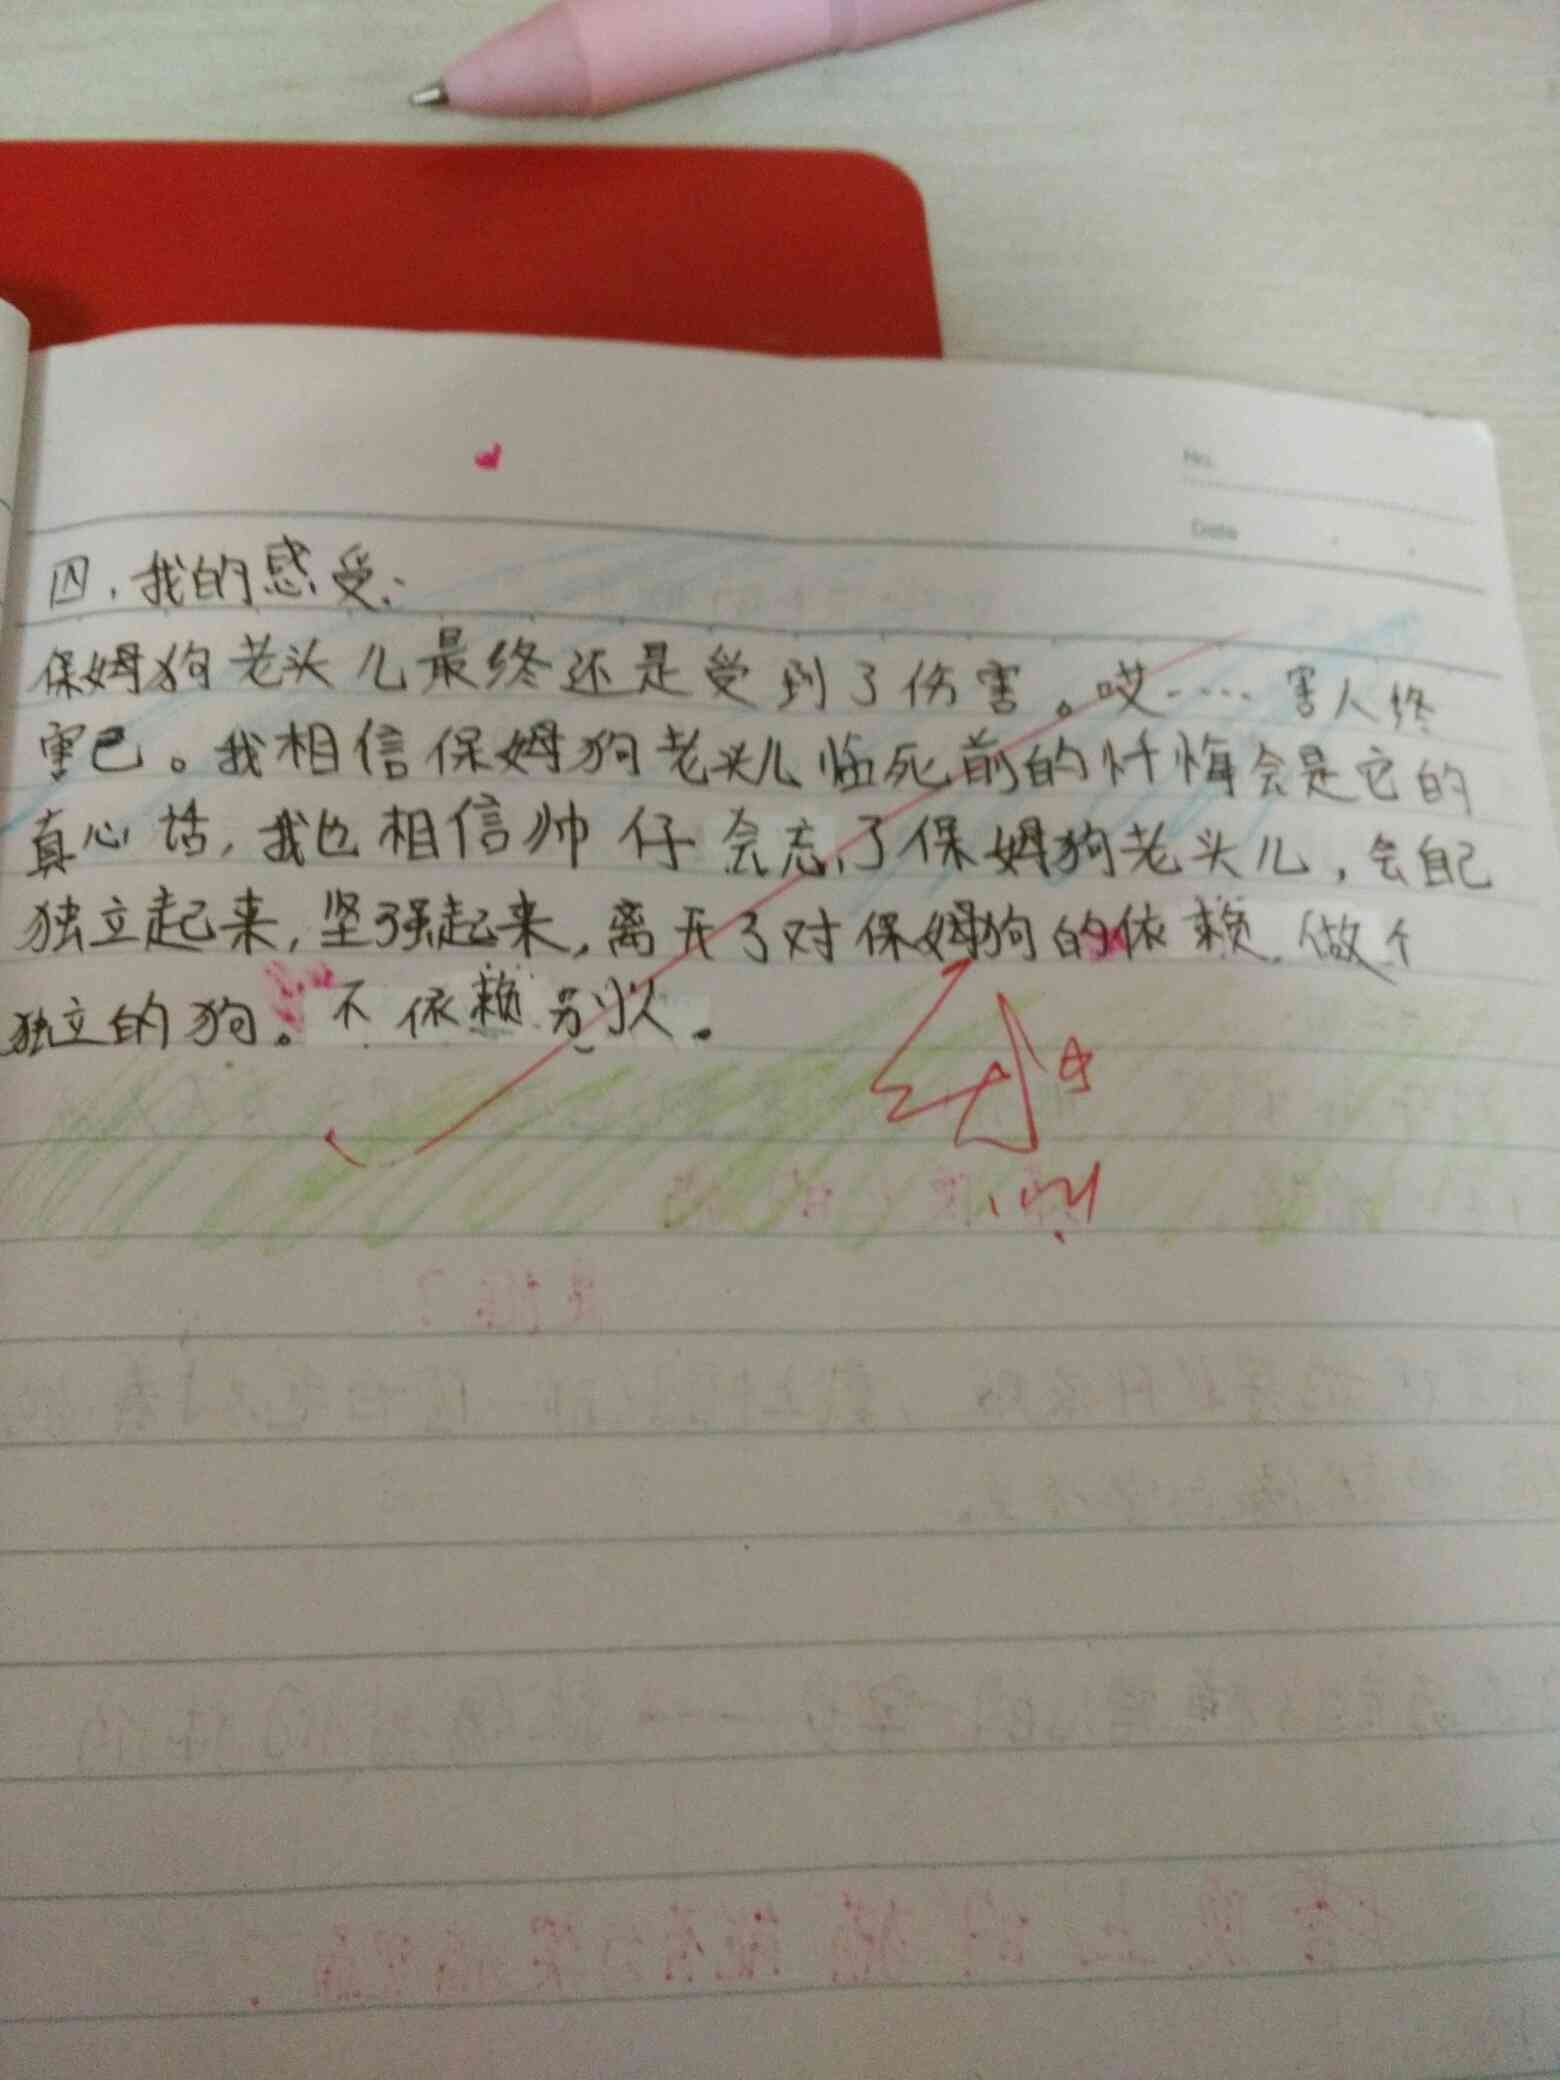 No.
Date
四、我的感受:
保姆狗老头儿最终还是受到了伤害。哎…… 害人终
害己。我相信保姆狗老头儿临死前的忏悔会是它的
真心话,我也相信帅仔会忘了保姆狗老头儿,会自己
独立起来,坚强起来,离开了对保姆狗的依赖,做个
独立的狗。不依赖别人。